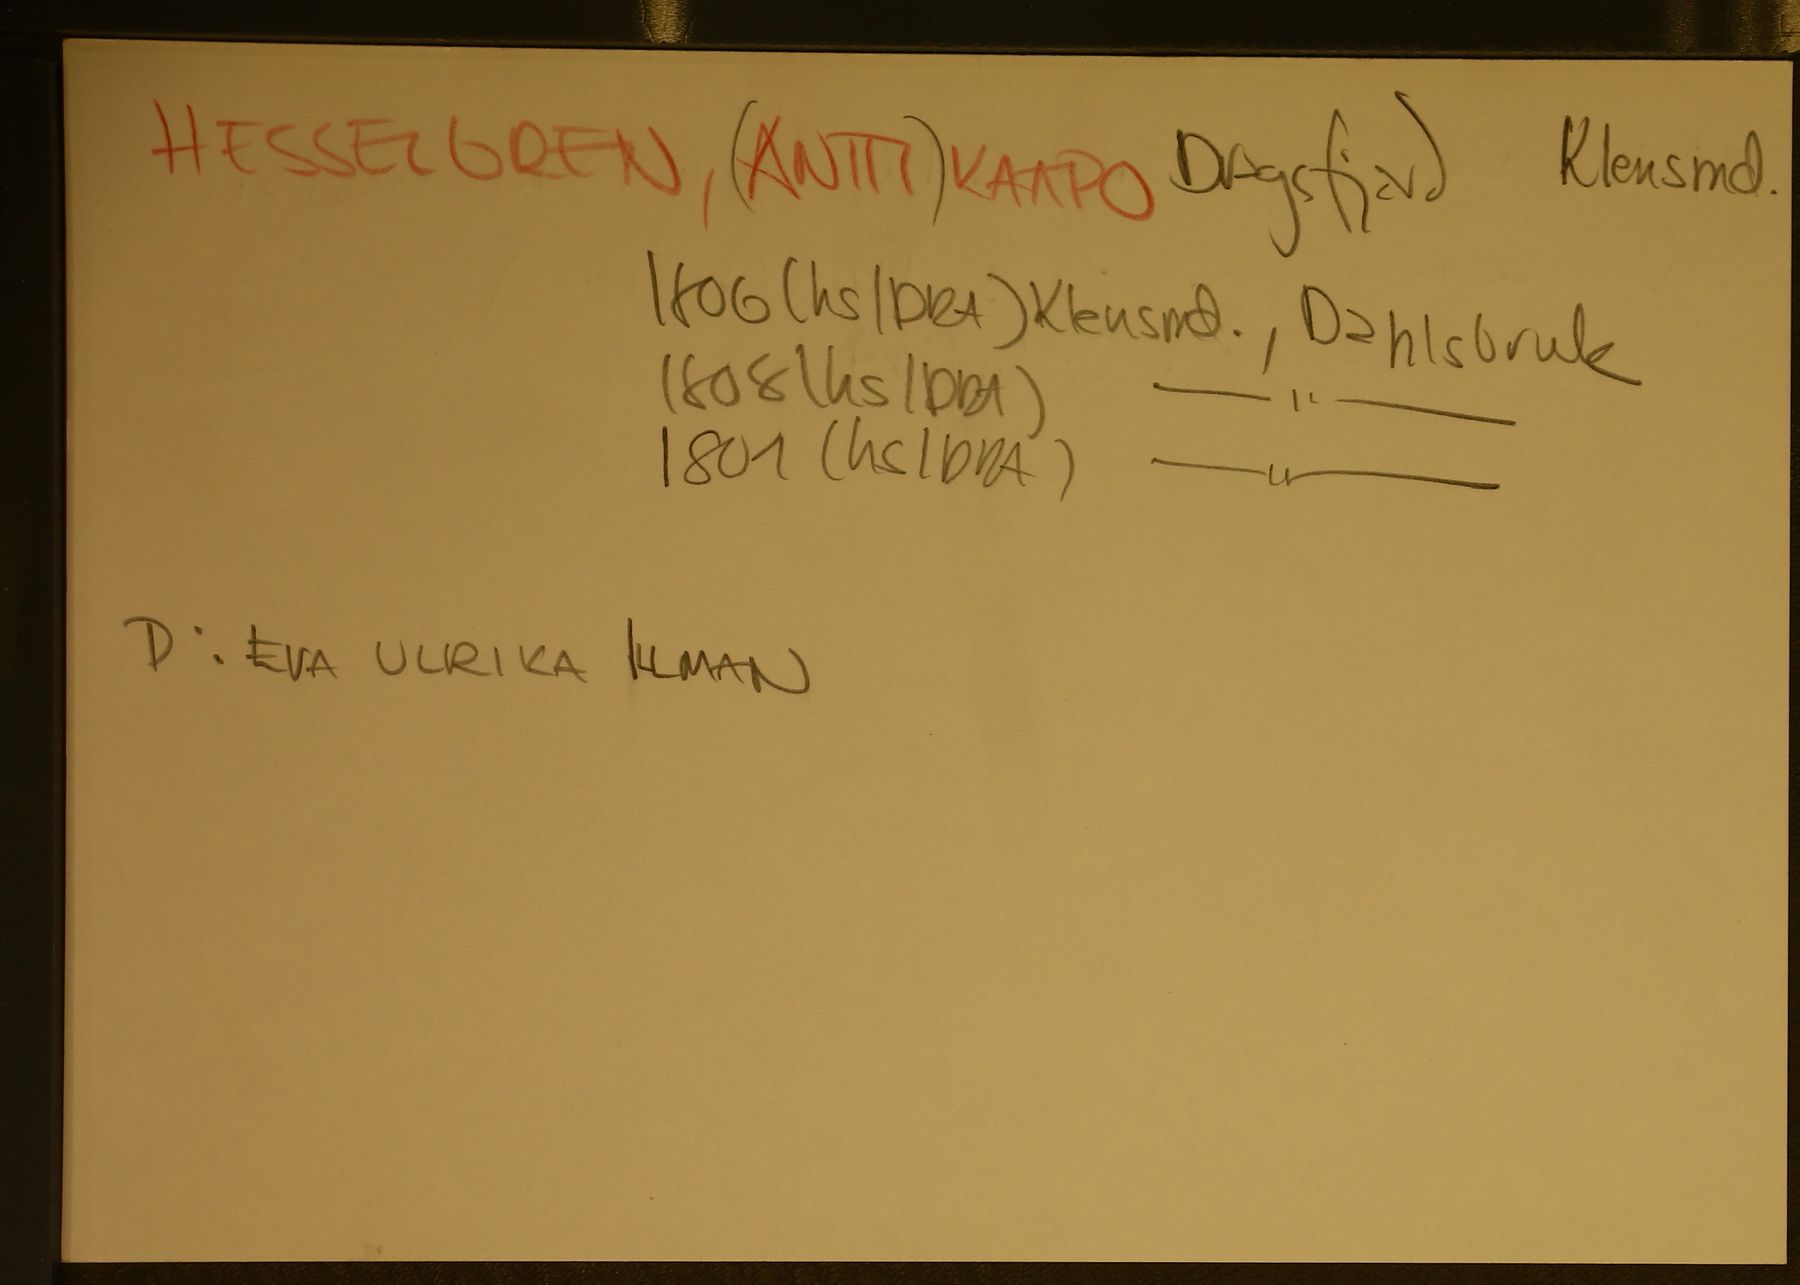 HESSELGREN, (ANTTI) KAAPO Dragsfjärd Klensmd.
1806 (hs/DRA) Klensmd., Dahlsbruk
1808 (hs/DRA) — " —
1801 (hs/DRA) — " —
D: EVA ULRIKA ILLMAN